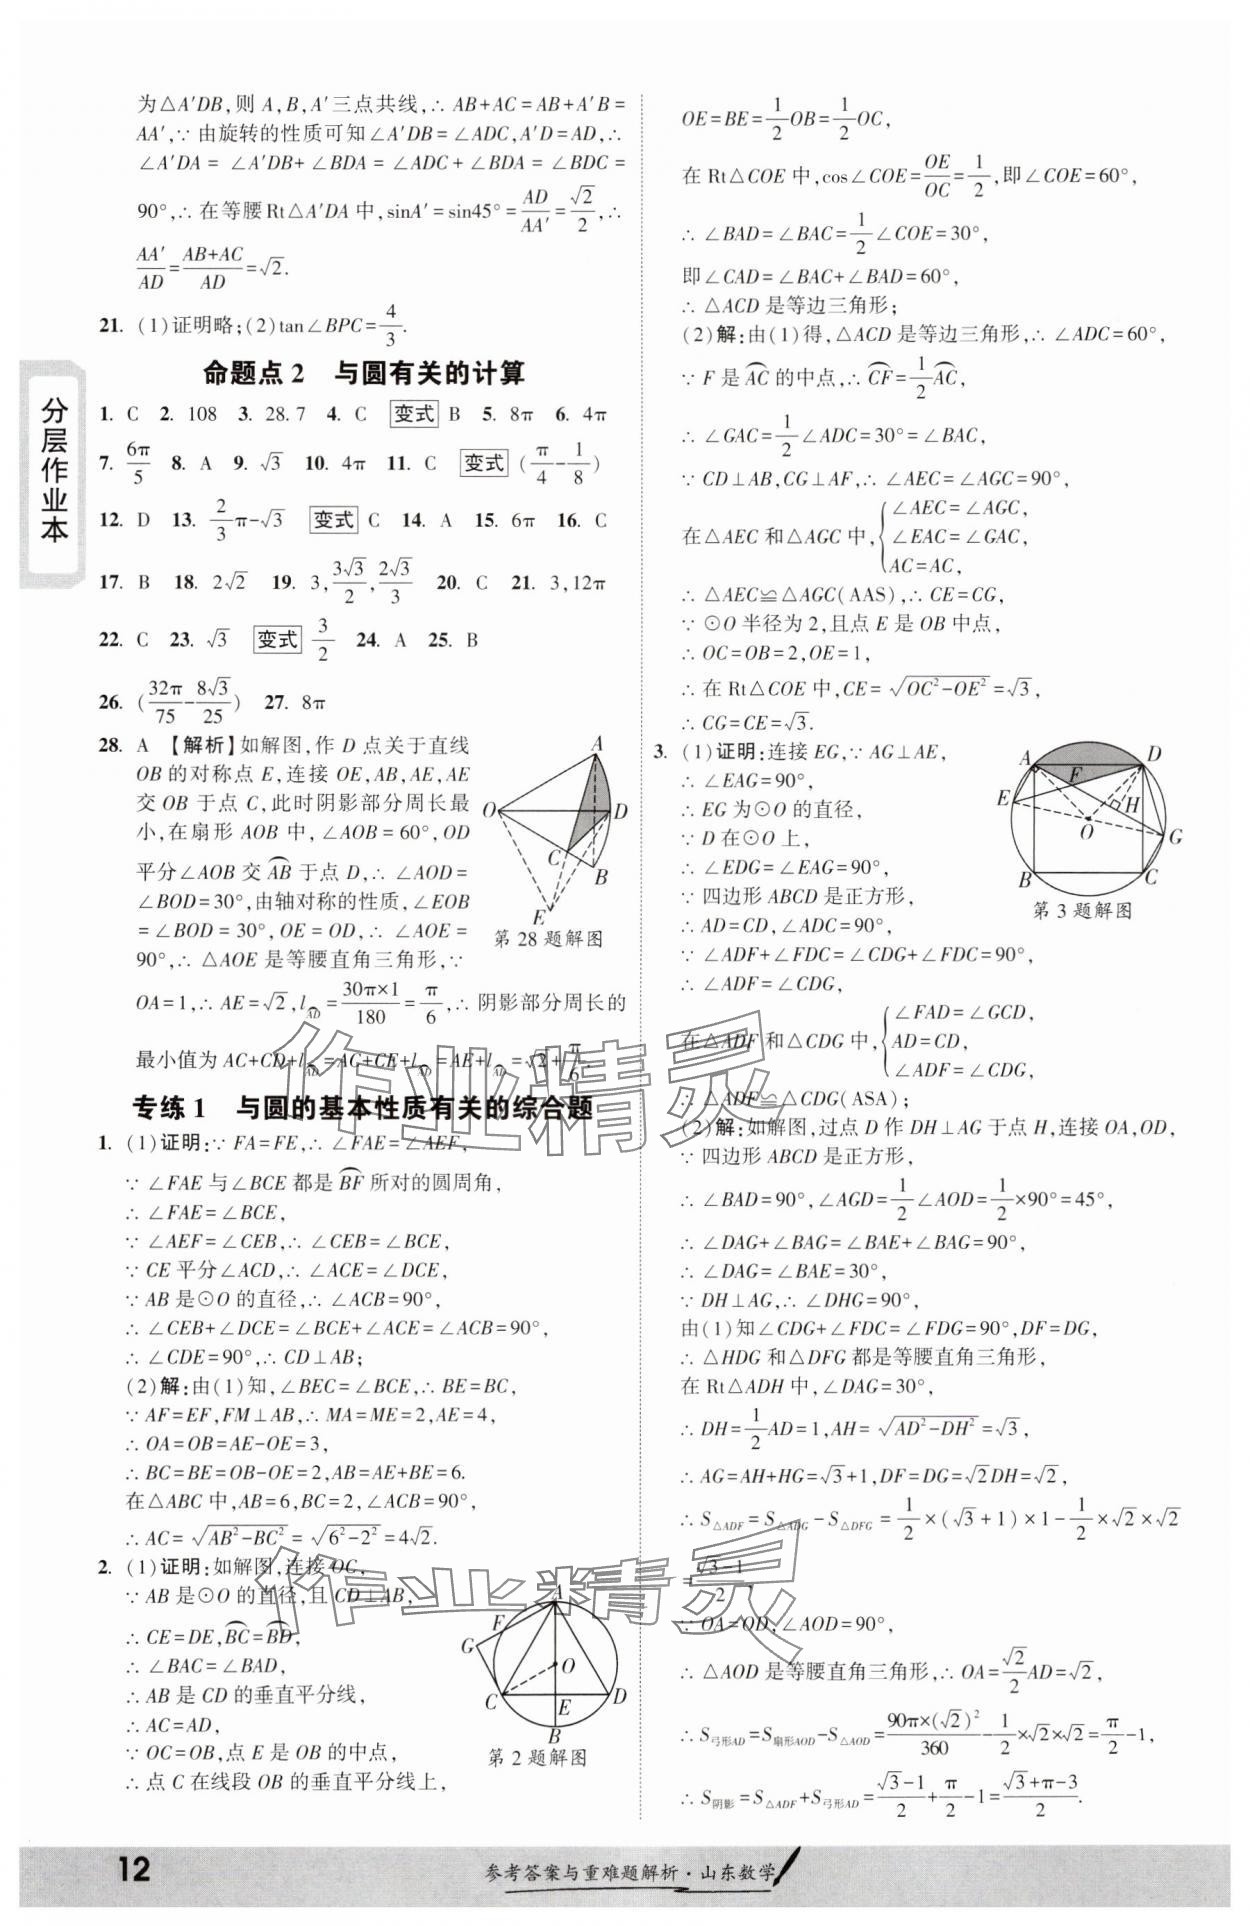 为△A′DB,则 A,B,A′三点共线,∴ AB+AC=AB+A′B=
AA′,∵ 由旋转的性质可知∠A′DB=∠ADC,A′D=AD,∴
∠A′DA = ∠A′DB+∠BDA = ∠ADC+∠BDA = ∠BDC =
90°,∴ 在等腰Rt△A′DA 中,sinA′=sin45°=AD/AA′=√2/2,∴
AA′/AD=(AB+AC)/AD=√2.
21. (1)证明略;(2)tan∠BPC=4/3.
命题点2 与圆有关的计算
1. C 2. 108 3. 28.7 4. C 变式 B 5. 8π 6. 4π
7. 6π/5 8. A 9. √3 10. 4π 11. C 变式 (π/4-1/8)
12. D 13. 2/3π-√3 变式 C 14. A 15. 6π 16. C
17. B 18. 2√2 19. 3,3√3/2,2√3/3 20. C 21. 3,12π
22. C 23. √3 变式 3/2 24. A 25. B
26. (32π/75-8√3/25) 27. 8π
28. A 【解析】如解图,作 D 点关于直线
OB 的对称点 E,连接 OE,AB,AE,AE
交 OB 于点 C,此时阴影部分周长最
小,在扇形 AOB 中,∠AOB=60°,OD
平分∠AOB 交 AB⌒ 于点 D,∴ ∠AOD=
∠BOD=30°,由轴对称的性质,∠EOB
=∠BOD=30°,OE=OD,∴ ∠AOE=
90°,∴ △AOE 是等腰直角三角形,∵
OA=1,∴ AE=√2,l AD⌒=30π×1/180=π/6,∴ 阴影部分周长的
最小值为 AC+CD+l AD⌒=AC+CE+l AD⌒=AE+l AD⌒=√2+π/6.
A
O
D
C
B
E
第 28 题解图
专练1 与圆的基本性质有关的综合题
1. (1)证明:∵ FA=FE,∴ ∠FAE=∠AEF,
∵ ∠FAE 与∠BCE 都是 BF⌒ 所对的圆周角,
∴ ∠FAE=∠BCE,
∵ ∠AEF=∠CEB,∴ ∠CEB=∠BCE,
∵ CE 平分∠ACD,∴ ∠ACE=∠DCE,
∵ AB 是⊙O 的直径,∴ ∠ACB=90°,
∴ ∠CEB+∠DCE=∠BCE+∠ACE=∠ACB=90°,
∴ ∠CDE=90°,∴ CD⊥AB;
(2)解:由(1)知,∠BEC=∠BCE,∴ BE=BC,
∵ AF=EF,FM⊥AB,∴ MA=ME=2,AE=4,
∴ OA=OB=AE-OE=3,
∴ BC=BE=OB-OE=2,AB=AE+BE=6.
在△ABC 中,AB=6,BC=2,∠ACB=90°,
∴ AC=√(AB²-BC²)=√(6²-2²)=4√2.
2. (1)证明:如解图,连接 OC,
∵ AB 是⊙O 的直径,且 CD⊥AB,
∴ CE=DE,BC⌒=BD⌒,
∴ ∠BAC=∠BAD,
∴ AB 是 CD 的垂直平分线,
∴ AC=AD,
∵ OC=OB,点 E 是 OB 的中点,
∴ 点 C 在线段 OB 的垂直平分线上,
A
F
G
O
C
E
D
B
第 2 题解图
OE=BE=1/2OB=1/2OC,
在 Rt△COE 中,cos∠COE=OE/OC=1/2,即∠COE=60°,
∴ ∠BAD=∠BAC=1/2∠COE=30°,
即∠CAD=∠BAC+∠BAD=60°,
∴ △ACD 是等边三角形;
(2)解:由(1)得,△ACD 是等边三角形,∴ ∠ADC=60°,
∵ F 是 AC⌒ 的中点,∴ CF⌒=1/2AC⌒,
∴ ∠GAC=1/2∠ADC=30°=∠BAC,
∵ CD⊥AB,CG⊥AF,∴ ∠AEC=∠AGC=90°,
在△AEC 和△AGC 中,{∠AEC=∠AGC,
∠EAC=∠GAC,
AC=AC,
∴ △AEC≌△AGC(AAS),∴ CE=CG,
∵ ⊙O 半径为 2,且点 E 是 OB 中点,
∴ OC=OB=2,OE=1,
∴ 在 Rt△COE 中,CE=√(OC²-OE²)=√3,
∴ CG=CE=√3.
3. (1)证明:连接 EG,∵ AG⊥AE,
∴ ∠EAG=90°,
∴ EG 为⊙O 的直径,
∵ D 在⊙O 上,
∴ ∠EDG=∠EAG=90°,
∵ 四边形 ABCD 是正方形,
∴ AD=CD,∠ADC=90°,
∵ ∠ADF+∠FDC=∠CDG+∠FDC=90°,
∴ ∠ADF=∠CDG,
在△ADF 和△CDG 中,{∠FAD=∠GCD,
AD=CD,
∠ADF=∠CDG,
∴ △ADF≌△CDG(ASA);
A
D
F
E
H
O
G
B
C
第 3 题解图
(2)解:如解图,过点 D 作 DH⊥AG 于点 H,连接 OA,OD,
∵ 四边形 ABCD 是正方形,
∴ ∠BAD=90°,∠AGD=1/2∠AOD=1/2×90°=45°,
∴ ∠DAG+∠BAG=∠BAE+∠BAG=90°,
∴ ∠DAG=∠BAE=30°,
∵ DH⊥AG,∴ ∠DHG=90°,
由(1)知∠CDG+∠FDC=∠FDG=90°,DF=DG,
∴ △HDG 和△DFG 都是等腰直角三角形,
在 Rt△ADH 中,∠DAG=30°,
∴ DH=1/2AD=1,AH=√(AD²-DH²)=√3,
∴ AG=AH+HG=√3+1,DF=DG=√2DH=√2,
∴ S△ADF=S△ADG-S△DFG=1/2×(√3+1)×1-1/2×√2×√2
=(√3-1)/2.
∵ OA=OD,∠AOD=90°,
∴ △AOD 是等腰直角三角形,∴ OA=√2/2AD=√2,
∴ S弓形AD=S扇形AOD-S△AOD=90π×(√2)²/360-1/2×√2×√2=π/2-1,
∴ S阴影=S△ADF+S弓形AD=(√3-1)/2+π/2-1=(√3+π-3)/2.
分层作业本
作业精灵
作业精灵
12
参考答案与重难题解析·山东数学